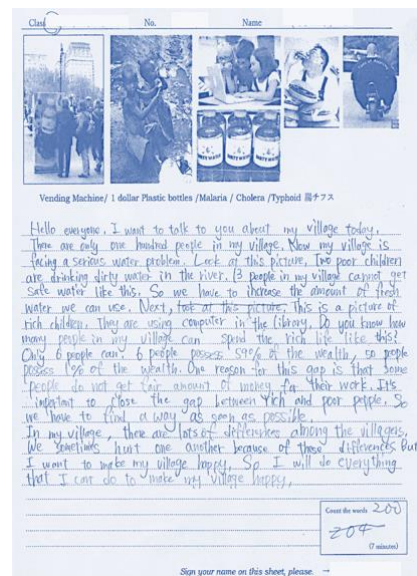 Class No. Name
Vending Machine/ 1 dollar Plastic bottles /Malaria / Cholera /Typhoid 腸チフス
Hello everyone. I want to talk to you about my village today.
There are only one hundred people in my village. Now my village is
facing a serious water problem. Look at this picture. Two poor children
are drinking dirty water in the river. 13 people in my village cannot get
safe water like this. So we have to increase the amount of fresh
water we can use. Next, look at this picture. This is a picture of
rich children. They are using computer in the library. Do you know how
many people in my village can spend the rich life like this?
Only 6 people can. 6 people possess 59% of the wealth, 20 people
possess 1% of the wealth. One reason for this gap is that some
people do not get fair amount of money for their work. It's
important to close the gap between rich and poor people. So
we have to find a way as soon as possible.
In my village, there are lots of differences among the villagers.
We sometimes hunt one another because of these differences. But
I want to make my village happy. So I will do everything
that I can do to make my village happy.
Count the words 200
204
(7 minutes)
Sign your name on this sheet, please. →